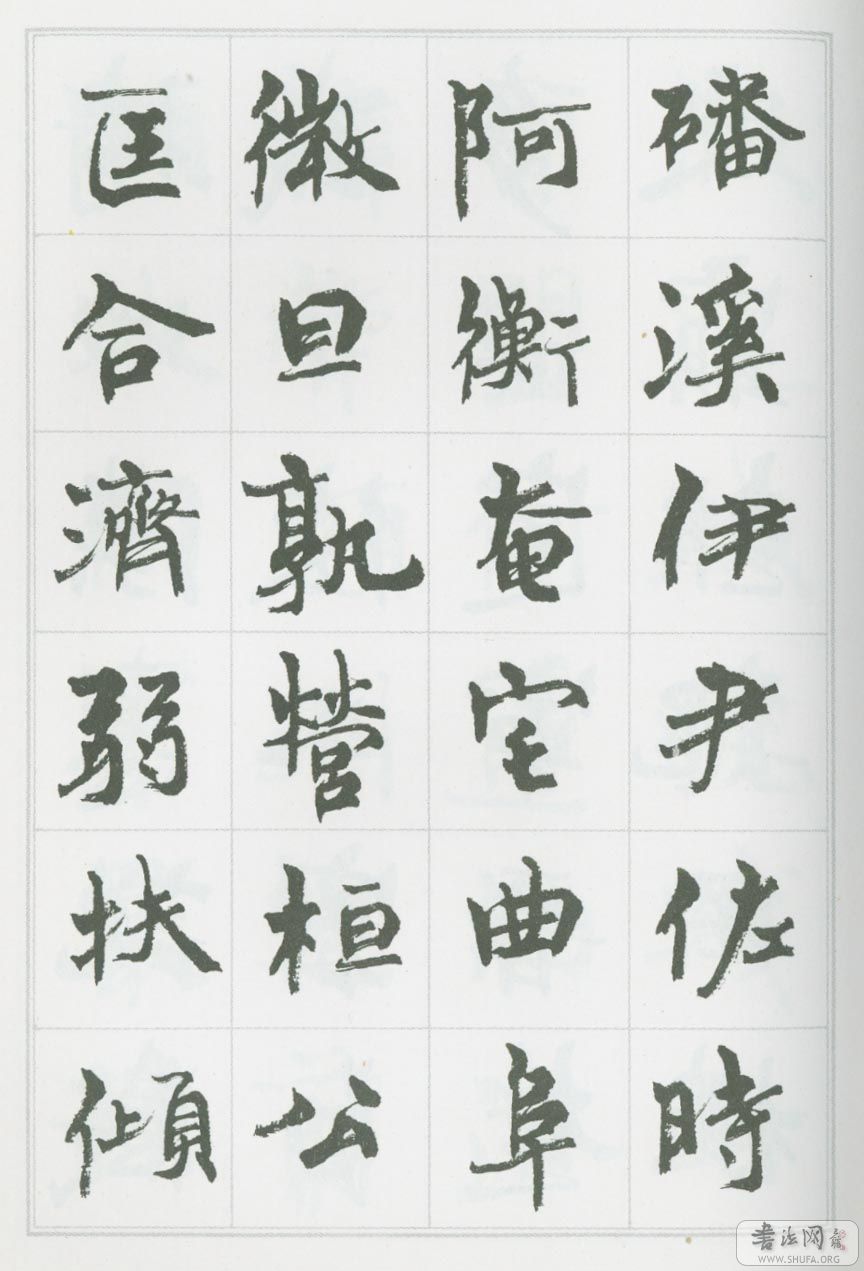 磻溪伊尹佐時
阿衡奄宅曲阜
微旦孰營桓公
匡合濟弱扶傾
書法网
WWW.SHUFA.ORG